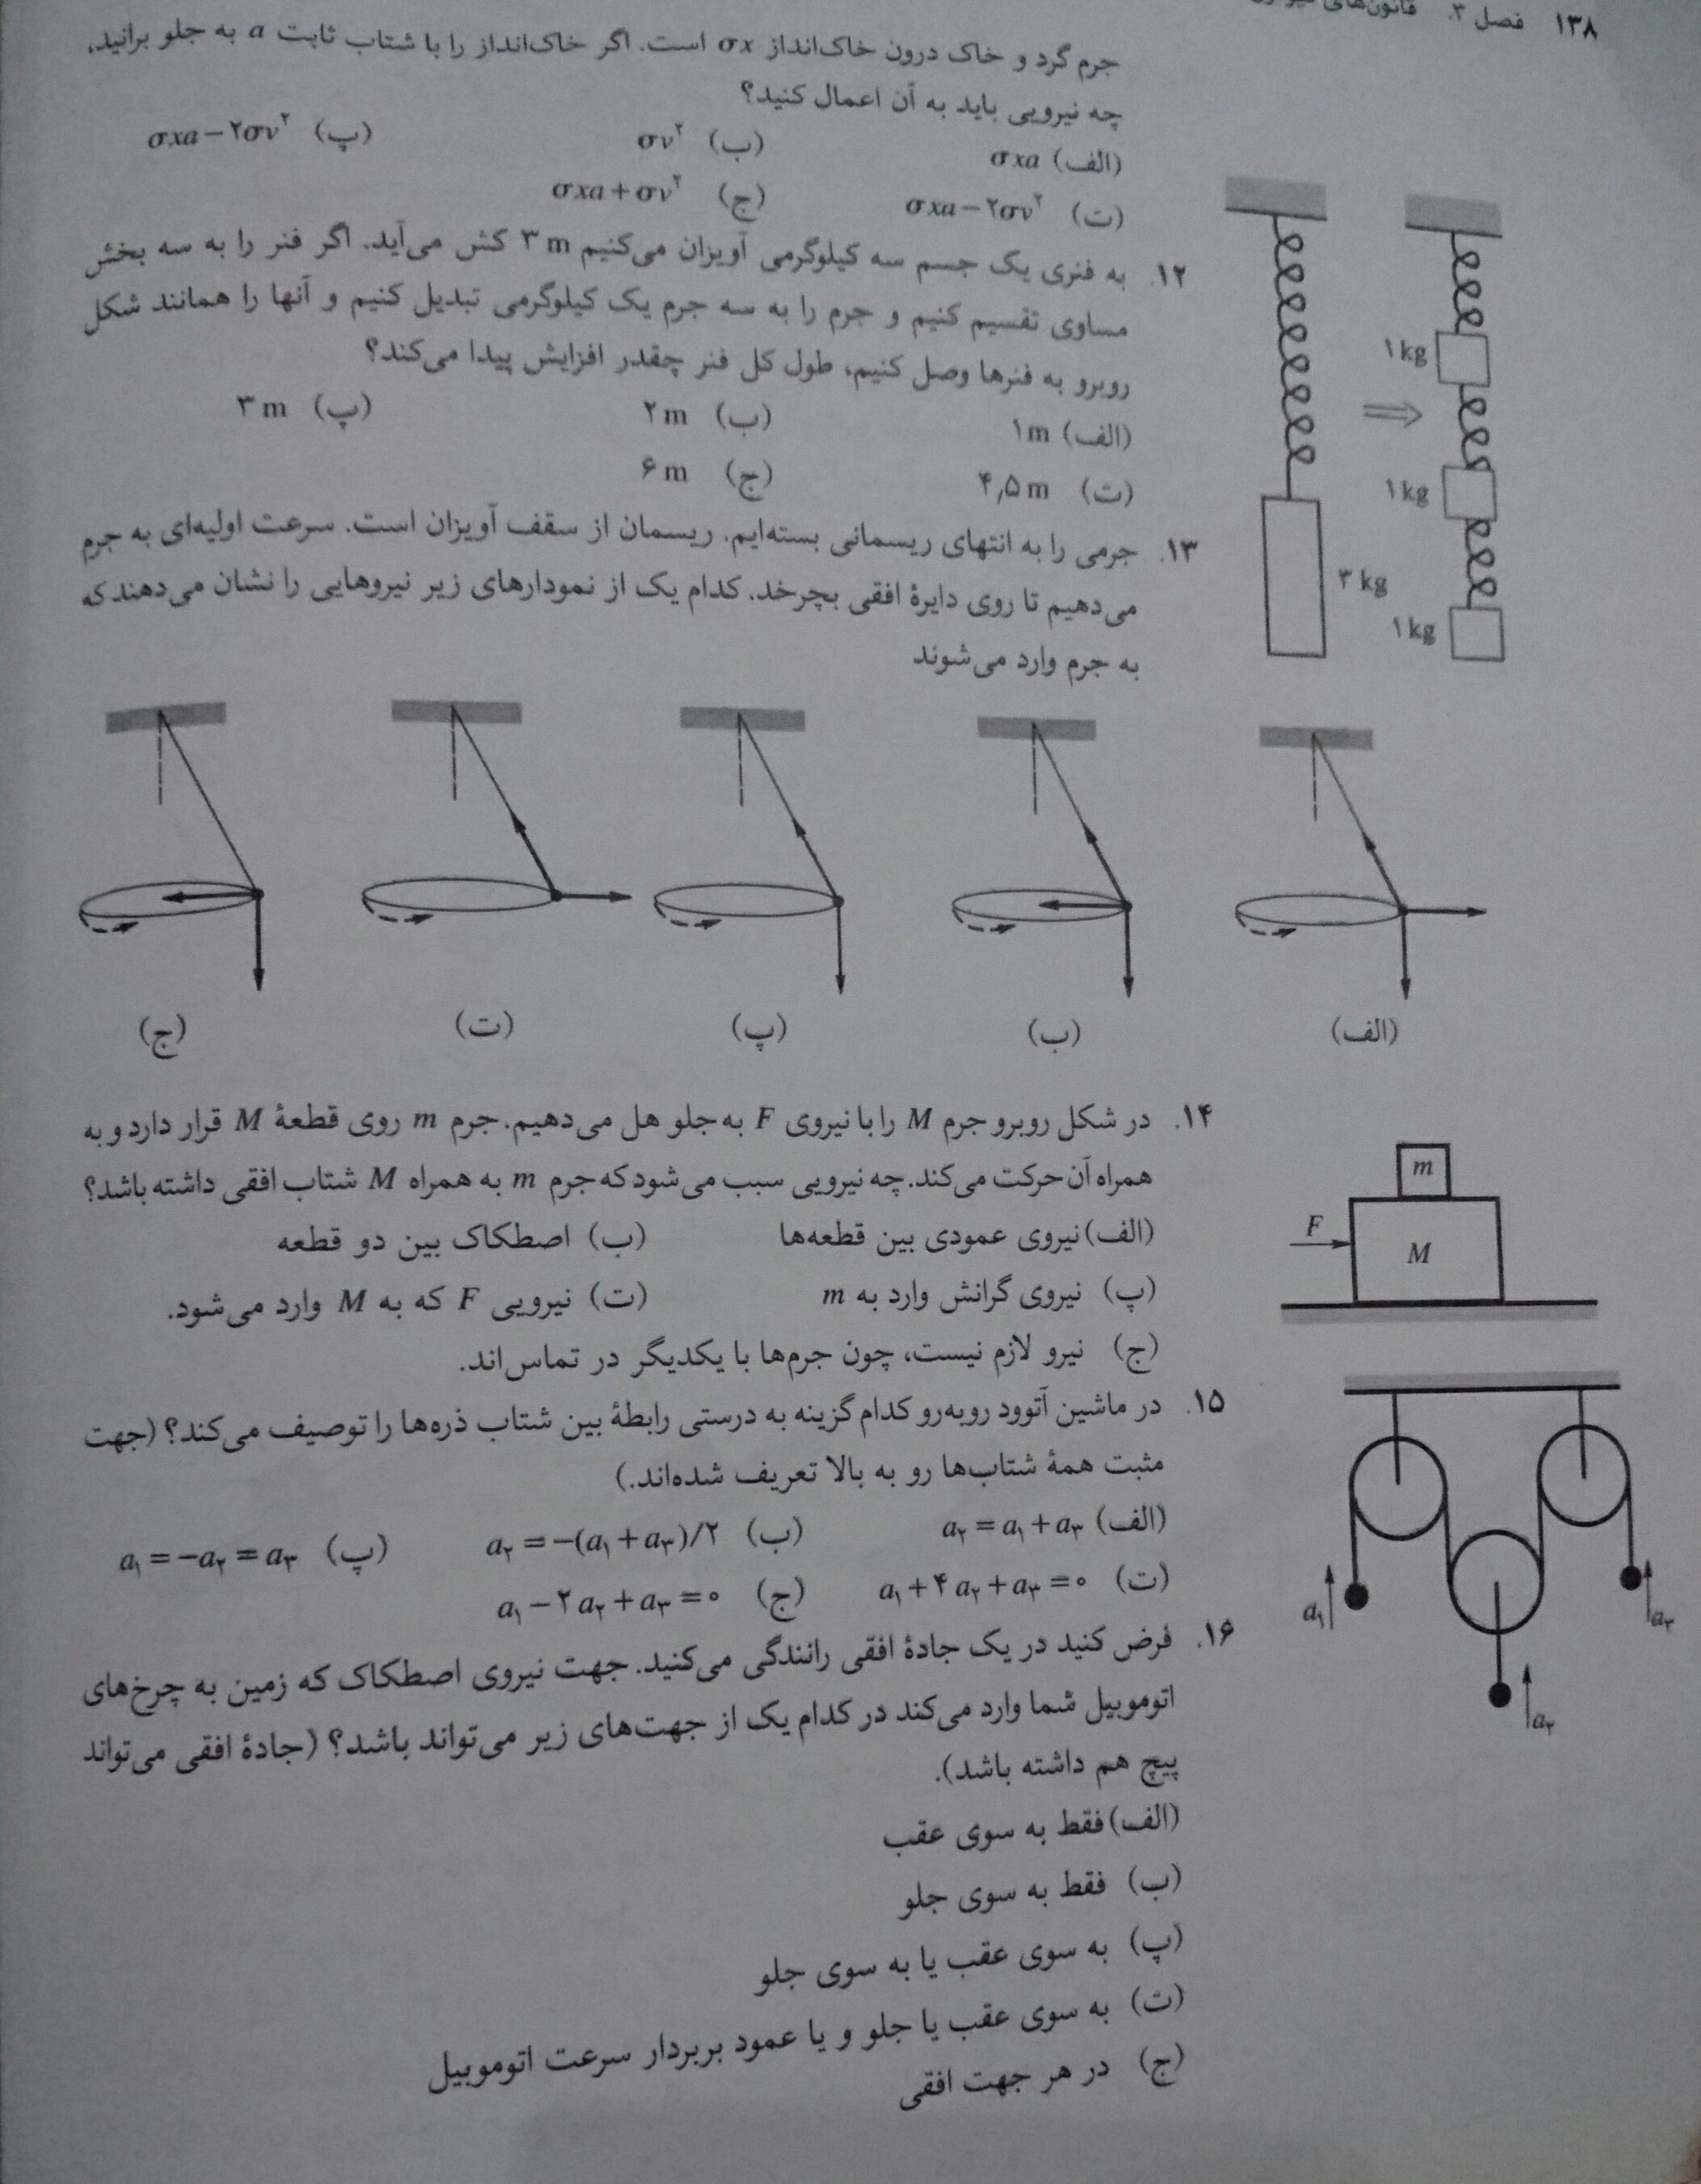 ۱۳۸ فصل ۳. قانون‌های
جرم گرد و خاک درون خاک‌انداز σx است. اگر خاک‌انداز را با شتاب ثابت a به جلو برانید،
چه نیرویی باید به آن اعمال کنید؟
(الف) σxa (ب) σv² (پ) σxa − ۲σv²
(ت) σxa − ۲σv² (ج) σxa + σv²
۱۲. به فنری یک جسم سه کیلوگرمی آویزان می‌کنیم ۳ m کش می‌آید. اگر فنر را به سه بخش
مساوی تقسیم کنیم و جرم را به سه جرم یک کیلوگرمی تبدیل کنیم و آنها را همانند شکل
روبرو به فنرها وصل کنیم، طول کل فنر چقدر افزایش پیدا می‌کند؟
(الف) ۱ m (ب) ۲ m (پ) ۳ m
(ت) ۴٫۵ m (ج) ۶ m
۱ kg
۱ kg
۳ kg
۱ kg
۱۳. جرمی را به انتهای ریسمانی بسته‌ایم. ریسمان از سقف آویزان است. سرعت اولیه‌ای به جرم
می‌دهیم تا روی دایرهٔ افقی بچرخد. کدام یک از نمودارهای زیر نیروهایی را نشان می‌دهند که
به جرم وارد می‌شوند
(الف) (ب) (پ) (ت) (ج)
۱۴. در شکل روبرو جرم M را با نیروی F به جلو هل می‌دهیم. جرم m روی قطعهٔ M قرار دارد و به
همراه آن حرکت می‌کند. چه نیرویی سبب می‌شود که جرم m به همراه M شتاب افقی داشته باشد؟
(الف) نیروی عمودی بین قطعه‌ها (ب) اصطکاک بین دو قطعه
(پ) نیروی گرانش وارد به m (ت) نیرویی F که به M وارد می‌شود.
(ج) نیرو لازم نیست، چون جرم‌ها با یکدیگر در تماس‌اند.
m
F
M
۱۵. در ماشین آتوود روبه‌رو کدام گزینه به درستی رابطهٔ بین شتاب ذره‌ها را توصیف می‌کند؟ (جهت
مثبت همهٔ شتاب‌ها رو به بالا تعریف شده‌اند.)
(الف) a₂ = a₁ + a₃ (ب) a₂ = −(a₁ + a₃)/۲ (پ) a₁ = −a₂ = a₃
(ت) a₁ + ۴a₂ + a₃ = ۰ (ج) a₁ − ۲a₂ + a₃ = ۰
a₁
a₃
a₂
۱۶. فرض کنید در یک جادهٔ افقی رانندگی می‌کنید. جهت نیروی اصطکاک که زمین به چرخ‌های
اتوموبیل شما وارد می‌کند در کدام یک از جهت‌های زیر می‌تواند باشد؟ (جادهٔ افقی می‌تواند
پیچ هم داشته باشد).
(الف) فقط به سوی عقب
(ب) فقط به سوی جلو
(پ) به سوی عقب یا به سوی جلو
(ت) به سوی عقب یا جلو و یا عمود بربردار سرعت اتوموبیل
(ج) در هر جهت افقی